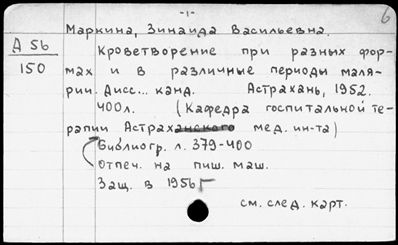 -1-
6
Маркина, Зинаида Васильевна.
А 56
150
Кроветворение при разных фор-
мах и в различные периоды маля-
рии. Дисс... канд. Астрахань, 1952.
400л. (Кафедра госпитальной те-
рапии Астраханского мед. ин-та)
Библиогр. л. 379-400
Отпеч. на пиш. маш.
Защ. в 1956г
см. след. карт.